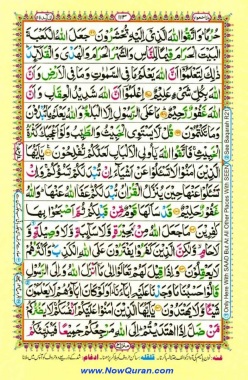 حُرُمًا وَاتَّقُوا اللّٰهَ الَّذِیْٓ اِلَیْهِ تُحْشَرُوْنَ جَعَلَ اللّٰهُ الْكَعْبَةَ
الْبَیْتَ الْحَرَامَ قِیٰمًا لِّلنَّاسِ وَالشَّهْرَ الْحَرَامَ وَالْهَدْیَ وَالْقَلَآئِدَ
ذٰلِكَ لِتَعْلَمُوْٓا اَنَّ اللّٰهَ یَعْلَمُ مَا فِی السَّمٰوٰتِ وَمَا فِی الْاَرْضِ وَاَنَّ
اللّٰهَ بِكُلِّ شَیْءٍ عَلِیْمٌ اِعْلَمُوْٓا اَنَّ اللّٰهَ شَدِیْدُ الْعِقَابِ وَاَنَّ
اللّٰهَ غَفُوْرٌ رَّحِیْمٌ مَا عَلَی الرَّسُوْلِ اِلَّا الْبَلٰغُ وَاللّٰهُ یَعْلَمُ مَا تُبْدُوْنَ
وَمَا تَكْتُمُوْنَ قُلْ لَّا یَسْتَوِی الْخَبِیْثُ وَالطَّیِّبُ وَلَوْ اَعْجَبَكَ كَثْرَةُ
الْخَبِیْثِ فَاتَّقُوا اللّٰهَ یٰٓاُولِی الْاَلْبَابِ لَعَلَّكُمْ تُفْلِحُوْنَ یٰٓاَیُّهَا
الَّذِیْنَ اٰمَنُوْا لَا تَسْـَٔلُوْا عَنْ اَشْیَآءَ اِنْ تُبْدَ لَكُمْ تَسُؤْكُمْ وَاِنْ
تَسْـَٔلُوْا عَنْهَا حِیْنَ یُنَزَّلُ الْقُرْاٰنُ تُبْدَ لَكُمْ عَفَا اللّٰهُ عَنْهَا وَاللّٰهُ
غَفُوْرٌ حَلِیْمٌ قَدْ سَاَلَهَا قَوْمٌ مِّنْ قَبْلِكُمْ ثُمَّ اَصْبَحُوْا بِهَا
كٰفِرِیْنَ مَا جَعَلَ اللّٰهُ مِنْۢ بَحِیْرَةٍ وَّلَا سَآئِبَةٍ وَّلَا وَصِیْلَةٍ وَّلَا
حَامٍ وَّلٰكِنَّ الَّذِیْنَ كَفَرُوْا یَفْتَرُوْنَ عَلَی اللّٰهِ الْكَذِبَ وَاَكْثَرُهُمْ
لَا یَعْقِلُوْنَ وَاِذَا قِیْلَ لَهُمْ تَعَالَوْا اِلٰی مَآ اَنْزَلَ اللّٰهُ وَاِلَی الرَّسُوْلِ
قَالُوْا حَسْبُنَا مَا وَجَدْنَا عَلَیْهِ اٰبَآءَنَا اَوَلَوْ كَانَ اٰبَآؤُهُمْ لَا یَعْلَمُوْنَ
شَیْـًٔا وَّلَا یَهْتَدُوْنَ یٰٓاَیُّهَا الَّذِیْنَ اٰمَنُوْا عَلَیْكُمْ اَنْفُسَكُمْ لَا یَضُرُّكُمْ
مَّنْ ضَلَّ اِذَا اهْتَدَیْتُمْ اِلَی اللّٰهِ مَرْجِعُكُمْ جَمِیْعًا فَیُنَبِّئُكُمْ
www.NowQuran.com